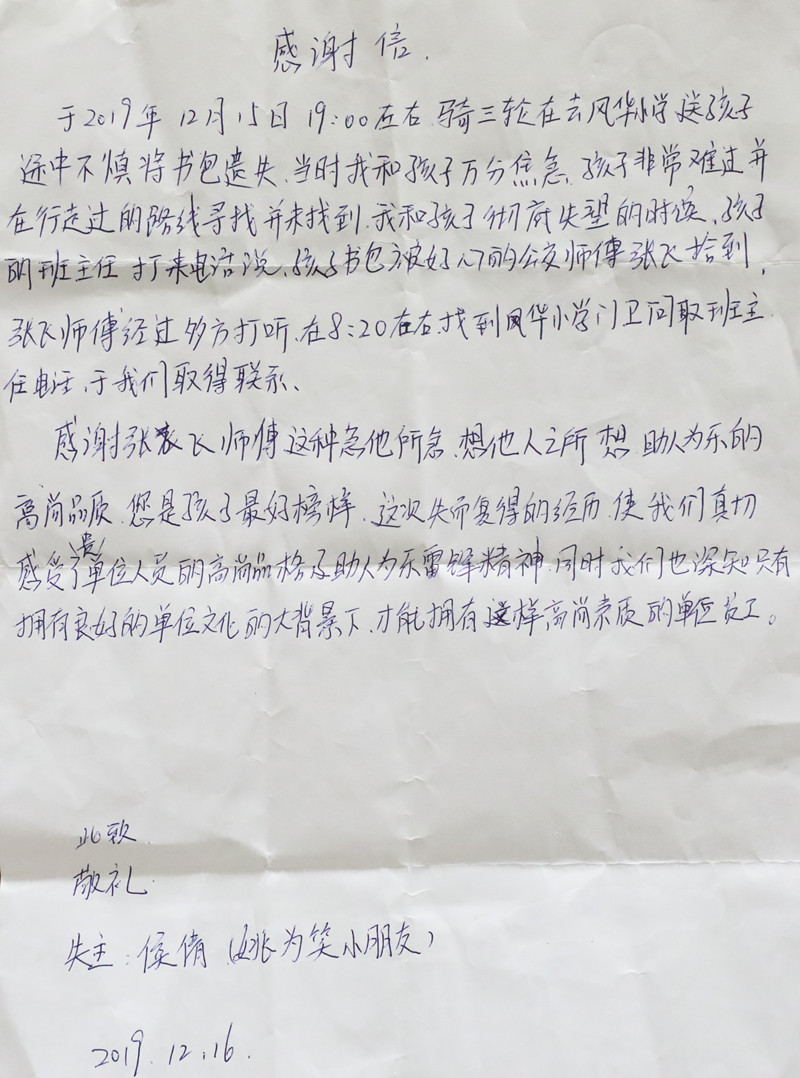 感谢信.
于2019年12月15日19:00左右.骑三轮在去风华小学送孩子
途中不慎将书包遗失.当时我和孩子万分焦急.孩子非常难过并
在行走过的路线寻找并未找到.我和孩子彻底失望的时候、孩子
的班主任打来电话说、孩子书包被好心的公交师傅张飞拾到,
张飞师傅经过多方打听、在8:20左右.找到风华小学门卫问取班主
任电话、于我们取得联系、
感谢张飞师傅这种急他所急.想他人之所想.助人为乐的
高尚品质.您是孩子最好榜样.这次失而复得的经历.使我们真切
感受了贵单位人员的高尚品格及助人为乐雷锋精神.同时我们也深知只有
拥有良好的单位文化的大背景下.才能拥有这样高尚素质的单位员工。
此致.
敬礼.
失主:侯倩(姚为笑小朋友)
2019.12.16.